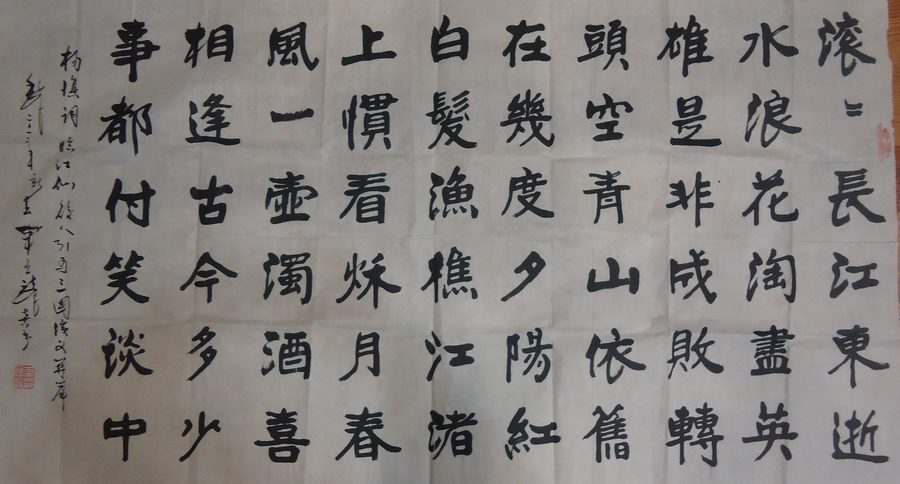 滚〻長江東逝
水浪花淘盡英
雄是非成敗轉
頭空青山依舊
在幾度夕陽紅
白髮漁樵江渚
上慣看秋月春
風一壺濁酒喜
相逢古今多少
事都付笑談中
杨慎词临江仙後人引为三国演义